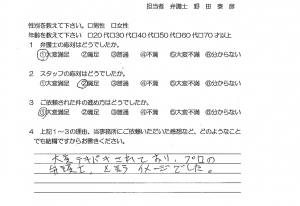 担当者 弁護士 野田泰彦
性別を教えて下さい。□男性 □女性
年齢を教えて下さい □20代□30代□40代□50代□60代□70才以上
1 弁護士の応対はどうでしたか。
①大変満足 ②満足 ③普通 ④不満 ⑤大変不満 ⑥分からない
2 スタッフの応対はどうでしたか。
①大変満足 ②満足 ③普通 ④不満 ⑤大変不満 ⑥分からない
3 ご依頼された件の進め方はどうでしたか。
①大変満足 ②満足 ③普通 ④不満 ⑤大変不満 ⑥分からない
4 上記1~3の理由、当事務所にご依頼いただいた感想など、どのようなこと
でも結構ですからお書きください。
大変テキパキされており、プロの
弁護士、と言うイメージでした。